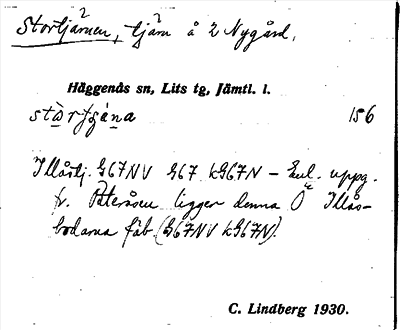 Stortjärnen, tjärn å 2 Nygård,
Häggenås sn, Lits tg, Jämtl. l.
156
Illåstj. G67NV G67 kG67N – Enl. uppg.
fr. Pateråsen ligger denna Ö Illås-
bodarna fäb. (G67NV kG67N).
C. Lindberg 1930.